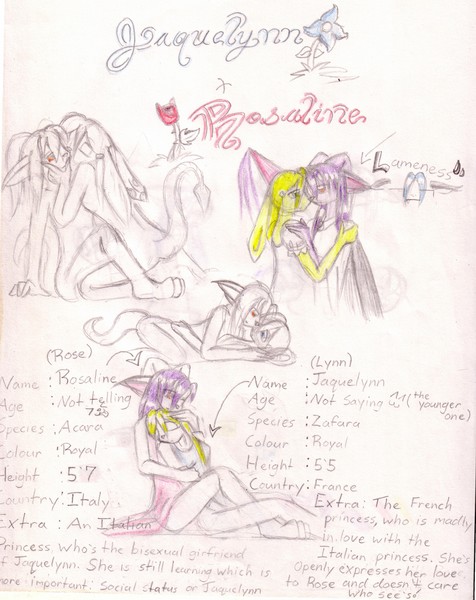 Jaquelynn
x
Rosaline
Lameness
(Rose)
Name : Rosaline
Age : Not telling
Species : Acara
Colour : Royal
Height : 5'7
Country : Italy
Extra : An Italian
Princess, who's the bisexual girlfriend
of Jaquelynn. She is still learning which is
more important: Social status or Jaquelynn
(Lynn)
Name : Jaquelynn
Age : Not Saying (the younger one)
Species : Zafara
Colour : Royal
Height : 5'5
Country : France
Extra : The French
princess, who is madly
in love with the
Italian princess. She's
openly expresses her love
to Rose and doesn't care
who see's.